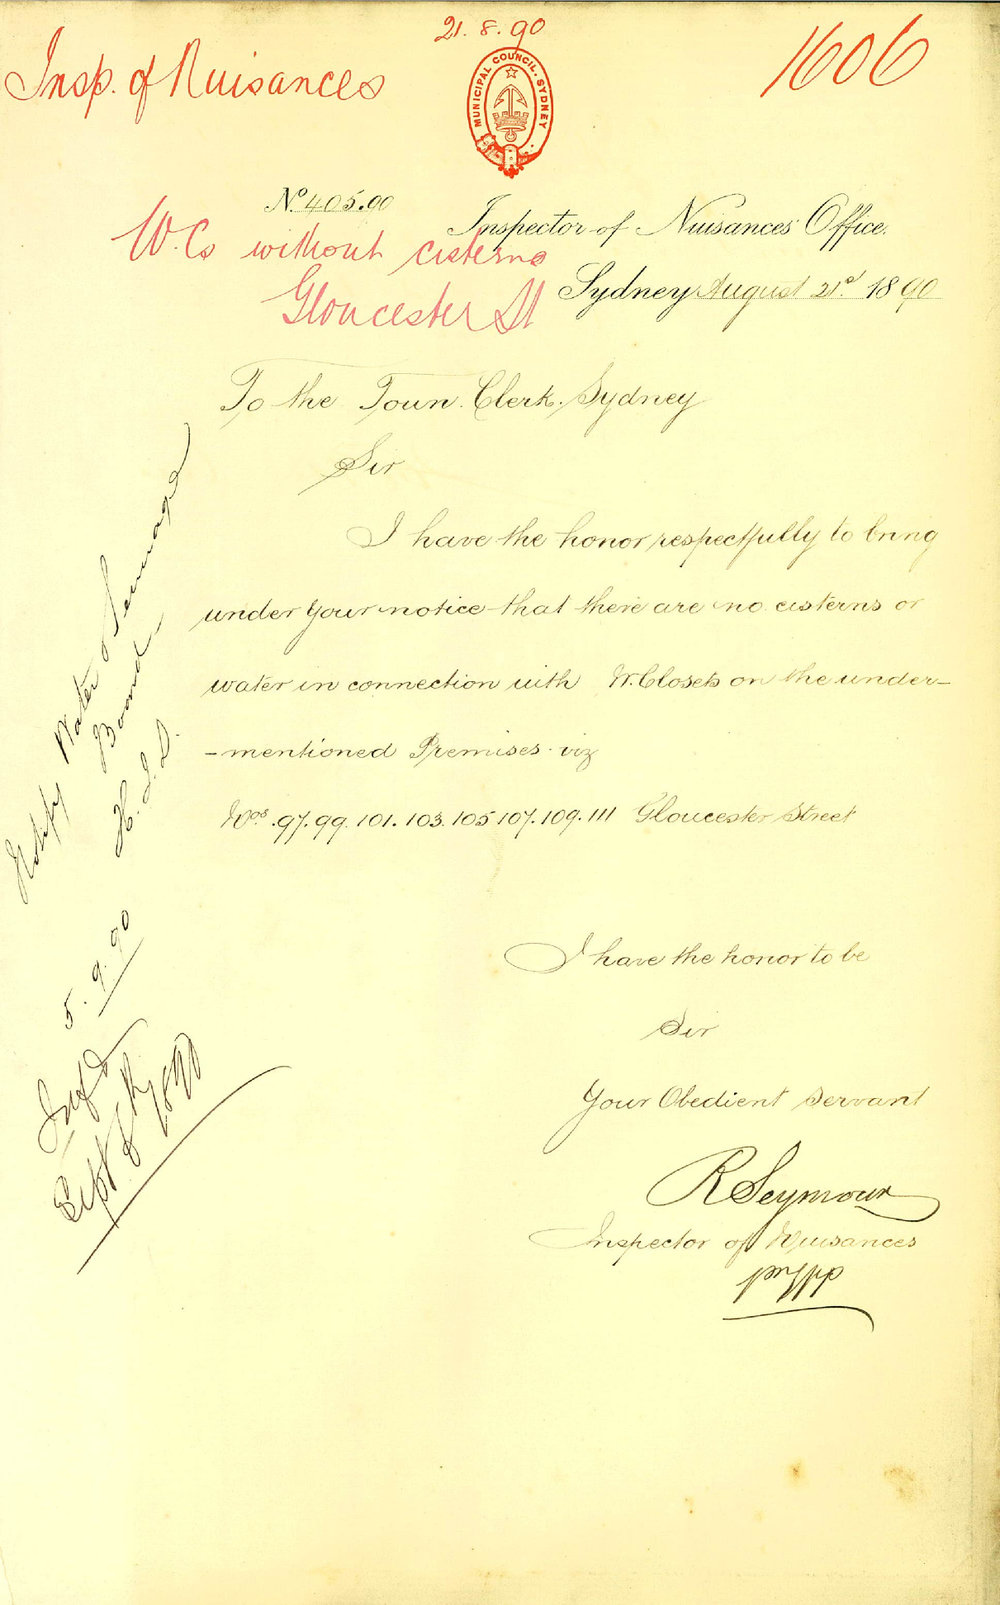 21. 8. 90
Insp. of Nuisances
1606
MUNICIPAL COUNCIL. SYDNEY
No. 405.90
Inspector of Nuisances' Office.
W.Cs without cisterns
Gloucester St
Sydney August 21st 1890
To the Town Clerk. Sydney
Sir
I have the honor respectfully to bring
under your notice that there are no cisterns or
water in connection with W. Closets on the under-
-mentioned Premises viz
Nos. 97. 99. 101. 103. 105 107. 109. 111 Gloucester Street
I have the honor to be
Sir
Your Obedient Servant
R Seymour
Inspector of Nuisances
Notify Water & Sewerage
Board
H. J. D.
5. 9. 90
Infd
Sept 8th 1890